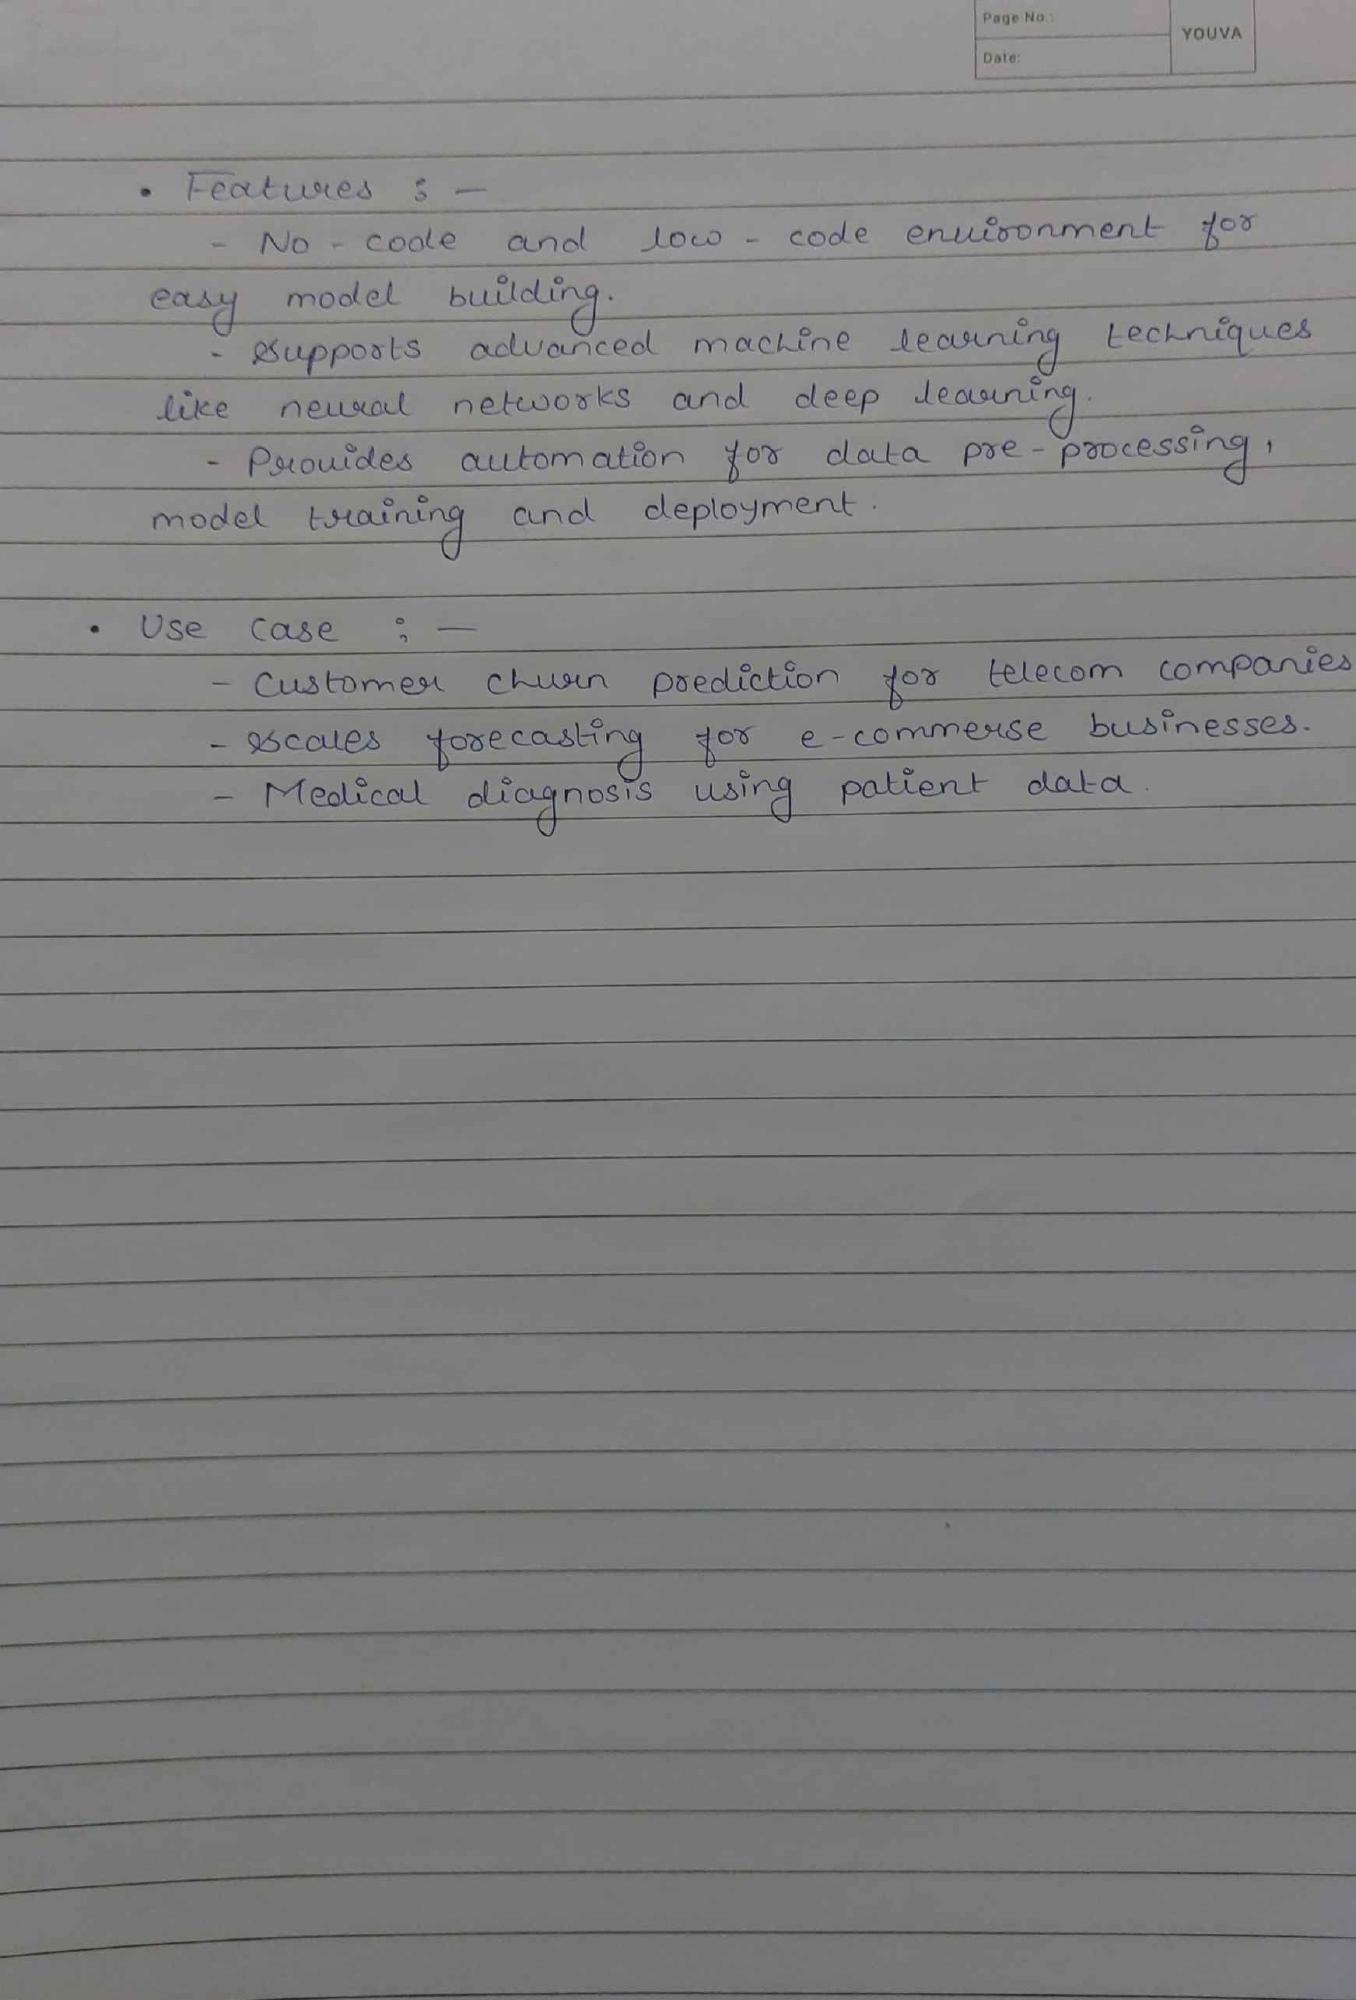 Page No.:
YOUVA
Date:
• Features : —
- No - code and low - code environment for
easy model building.
- supports advanced machine learning techniques
like neural networks and deep learning.
- Provides automation for data pre - processing,
model training and deployment.
• Use case : —
- Customer churn prediction for telecom companies
- scales forecasting for e-commerse businesses.
- Medical diagnosis using patient data.